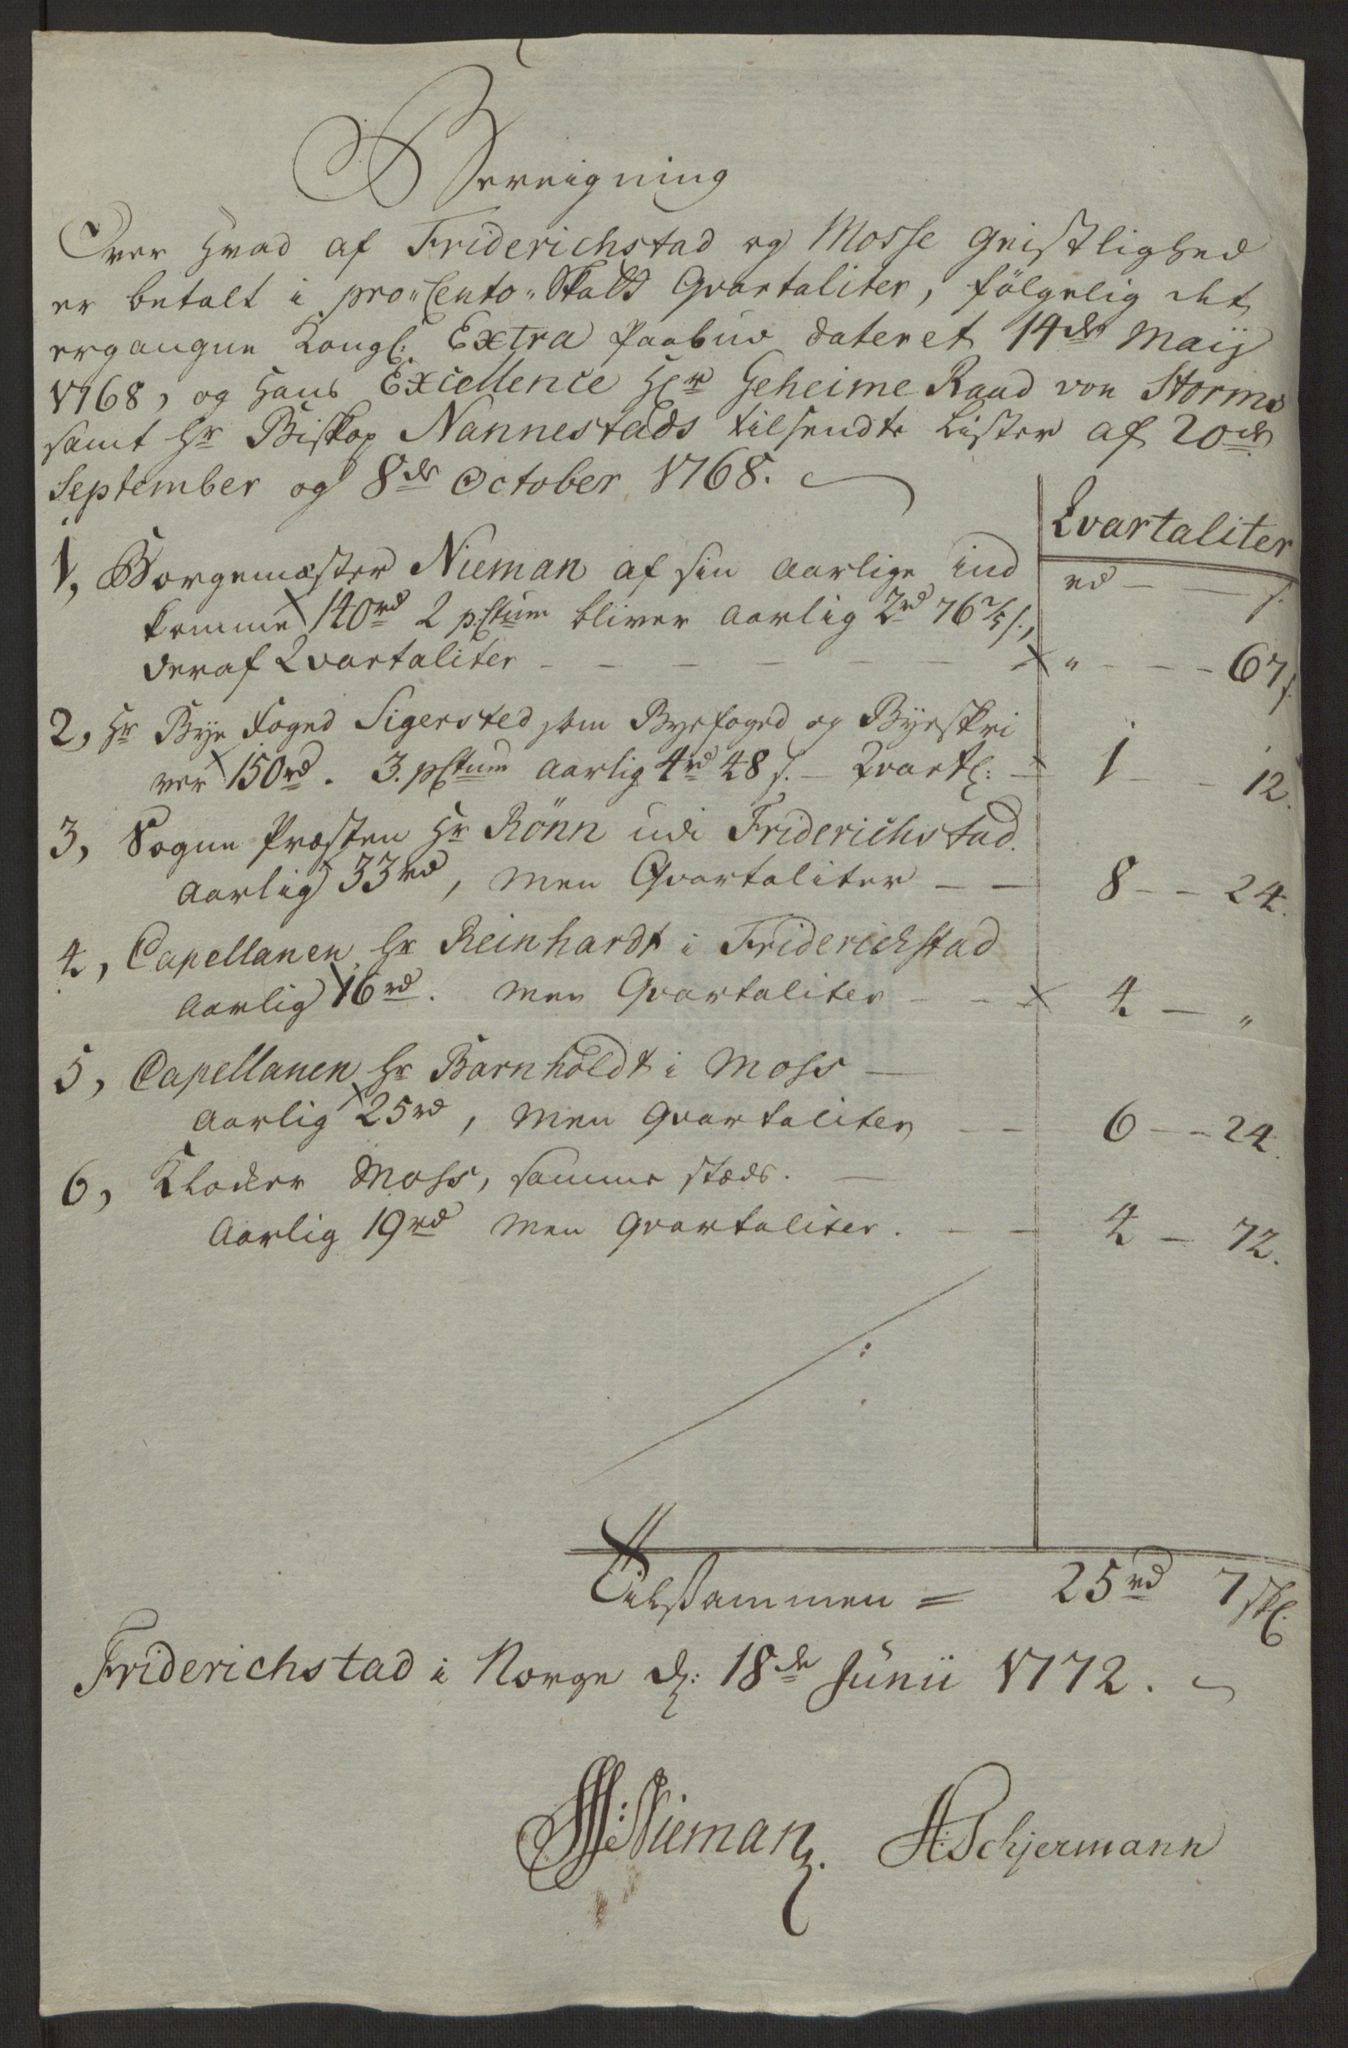 Bereigning
Over hvad af Friderichstad og Mosse Geistlighed
er betalt i pro Cento Skatt Qvartaliter, fölgelig det
ergangne Kongl: Extra Paabud dateret 14de Maij
1768, og Hans Excellence Hr Geheime Raad von Storms
samt Hr Biskop Nannestads tilsendte Lister af 20de
September og 8de October 1768.
Qvartaliter
rd — s.
1, Borgemæster Nieman af sin aarlige ind
komme 140rd 2 p.Ctum bliver aarlig 2rd 76 4/5 s.,
deraf Qvartaliter — — — — — — " — — — 67 s.
2, Hr Bye Foged Sigersted som Byefoged og Byeskri
ver 150rd. 3. pCtum aarlig 4rd 48 s. — Qvartl: — 1 — — 12.
3, Sogne Præsten Hr Rönn udi Friderichstad.
aarlig 33rd, men Qvartaliter — — 8 — — 24.
4, Capellanen Hr Reinhardt i Friderichstad
aarlig 16rd. men Qvartaliter — — 4 — "
5, Capellanen Hr Barnholdt i Moss —
aarlig 25rd, men Qvartaliter — — 6 — — 24.
6, Klocker Moss, samme stæds. —
aarlig 19rd men Qvartaliter. — — 4 — 72.
Tilsammen = 25rd 7 sk.
Friderichstad i Norge d: 18de Junii 1772.
Nieman. A: Schjermann